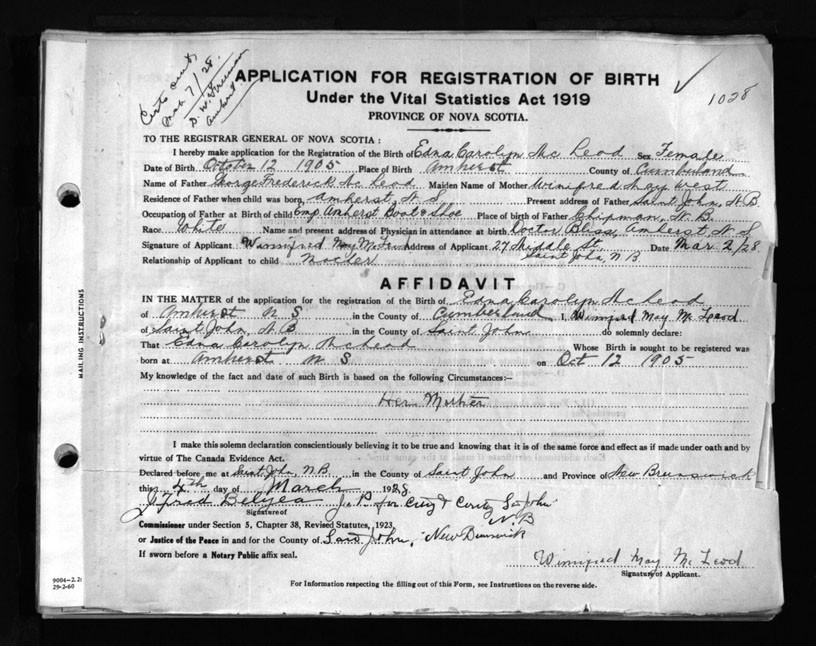 Mar 7/28.
1028
APPLICATION FOR REGISTRATION OF BIRTH
Under the Vital Statistics Act 1919
PROVINCE OF NOVA SCOTIA.
TO THE REGISTRAR GENERAL OF NOVA SCOTIA :
I hereby make application for the Registration of the Birth of Edna Carolyn Mc Leod Sex Female
Date of Birth October 12 1905 Place of Birth Amherst County of Cumberland
Name of Father George Frederick Mc Leod Maiden Name of Mother Winifred May West
Residence of Father when child was born Amherst, N. S. Present address of Father Saint John, N.B.
Occupation of Father at Birth of child Emp. Amherst Boot & Shoe Place of birth of Father Chipman, N. B.
Race White Name and present address of Physician in attendance at birth Doctor Bliss, Amherst N. S.
Signature of Applicant Winnifred May McLeod Address of Applicant 27 Middle St. Date Mar 2/28
Saint John, N B
Relationship of Applicant to child Mother
AFFIDAVIT
IN THE MATTER of the application for the registration of the Birth of Edna Carolyn McLeod
of Amherst N S in the County of Cumberland I, Winnifred May McLeod
of Saint John, N B in the County of Saint John do solemnly declare:
That Edna Carolyn McLeod Whose Birth is sought to be registered was
born at Amherst N S on Oct 12 1905
My knowledge of the fact and date of such Birth is based on the following Circumstances:—
her Mother
I make this solemn declaration conscientiously believing it to be true and knowing that it is of the same force and effect as if made under oath and by
virtue of The Canada Evidence Act.
Declared before me at Saint John, N.B. in the County of Saint John and Province of New Brunswick
this 4th day of March 1928.
Fred Belyea J. P. for City & County St John
N.B
Signature of
Commissioner under Section 5, Chapter 38, Revised Statutes, 1923
or Justice of the Peace in and for the County of Saint John, New Brunswick
If sworn before a Notary Public affix seal.
Winnifred May McLeod
Signature of Applicant.
For Information respecting the filling out of this Form, see Instructions on the reverse side.
MAILING INSTRUCTIONS
29-2-60